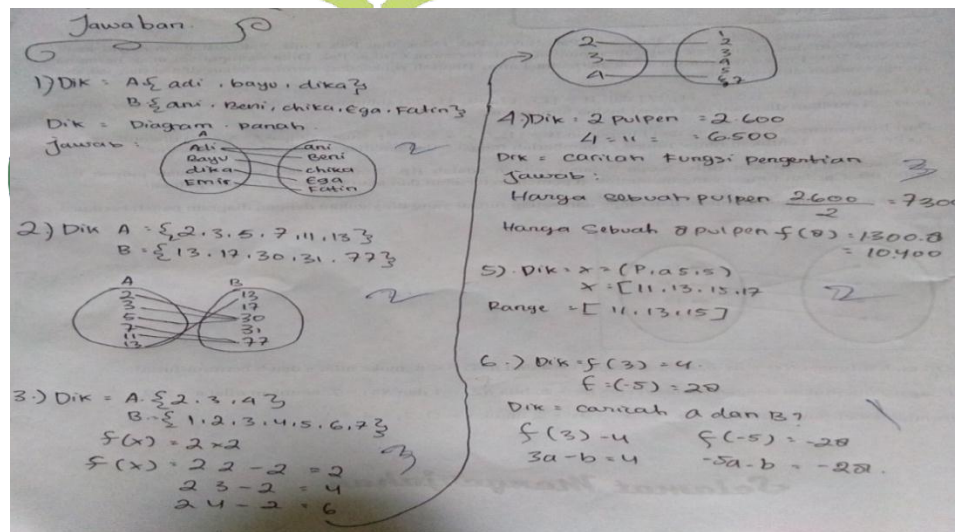 Jawaban.
1) Dik = A { adi, bayu, dika }
B { ani, Beni, chika, Ega, Fatin }
Dik = Diagram panah
Jawab :
A
Adi ani
Bayu Beni
dika chika
Emir Ega
Fatin
2
2) Dik A = { 2, 3, 5, 7, 11, 13 }
B = { 13, 17, 30, 31, 77 }
A B
2 13
3 17
5 30
7 31
11 77
13
2
3.) Dik = A. { 2, 3, 4 }
B = { 1, 2, 3, 4, 5, 6, 7 }
f(x) = 2 x 2
f(x) = 2 2 - 2 = 2
2 3 - 2 = 4
2 4 - 2 = 6
3
2 1 2
3 3
4 4
5
6, 7
4) Dik = 2 pulpen = 2.600
4 = 11 = = 6.500
Dik = carilah fungsi pengentian
Jawab :
3
Harga sebuah pulpen 2.600 / 2 = 7300
Harga sebuah 8 pulpen f(8) = 1300.8
= 10.400
5). Dik = x = (P, a 5, 5)
x = [ 11, 13, 15, 17
Range = [ 11, 13, 15 ]
2
6.) Dik = f (3) = 4.
f = (-5) = 28
Dik = carilah a dan B ?
f (3) - 4 f (-5) = -28
3a - b = 4 -5a - b = -28.
1